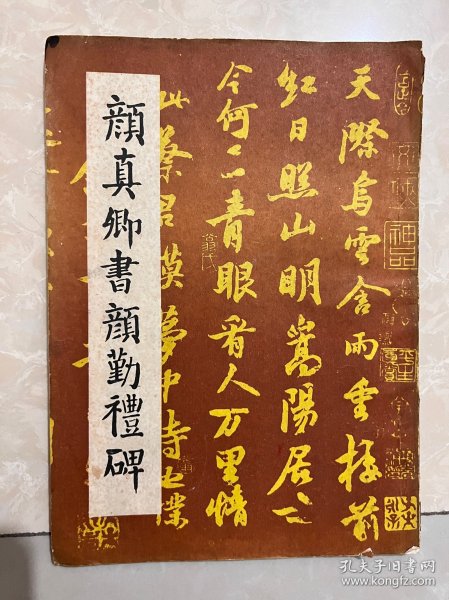 顔真卿書顔勤禮碑
天際烏雲含雨重樓前
紅日照山明嵩陽居士
今何在青眼看人万里情
此蔡君謨夢中詩也僕
神品
孔夫子旧书网
www.kongfz.com